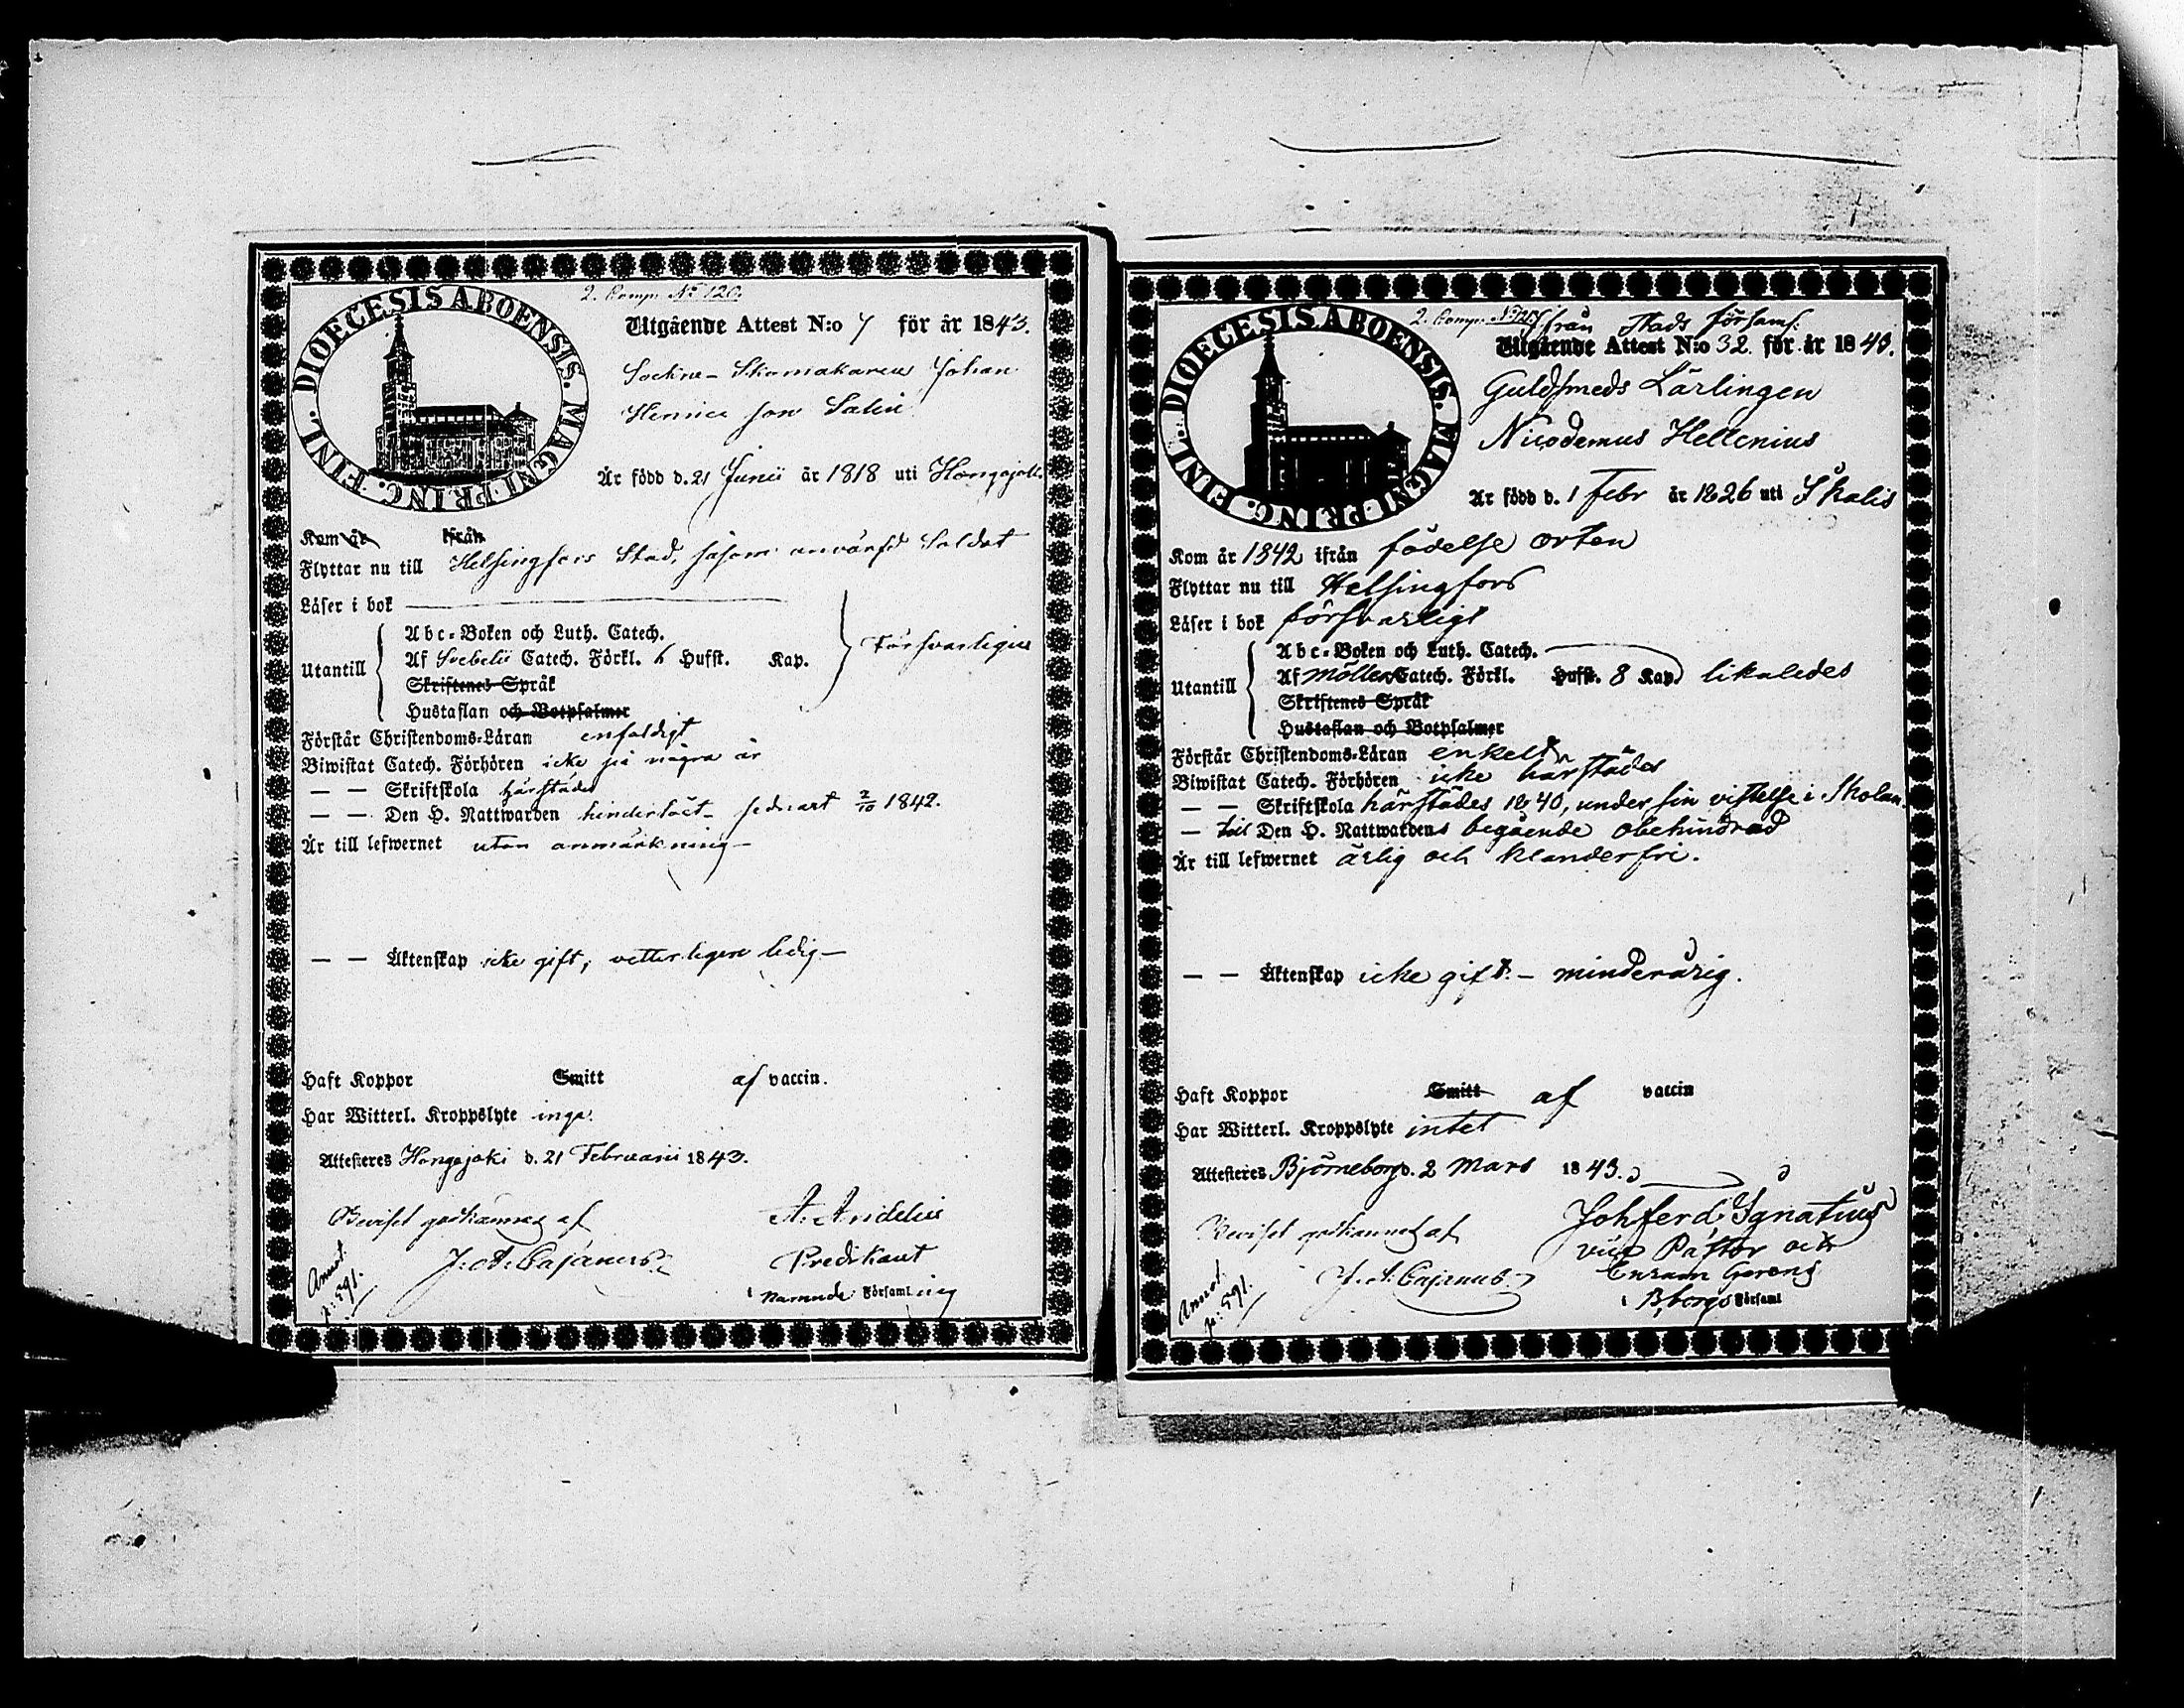 2. Komp: No 120.
DIOECESIS ABOENSIS. MAGNI PRINC. FINL.
Utgående Attest N:o 7 för år 1843.
Sockne-Skomakaren Johan
Henrics son Salin
Är född d. 21 Junii år 1818 uti
Kom år ifrån
Flyttar nu till Helsingfors Stad, såsom anvärfd Soldat
Läser i bok
Utantill
Abc-Boken och Luth. Catech.
Af Svebelii Catech. Förkl. 6 Hufst. Kap.
Försvarligen
Skriftenes Språk
Hustaflan och Botpsalmer
Förstår Christendoms-Läran enfaldigt
Biwistat Catech. Förhören icke på några år
— — Skriftskola härstädes
— — Den H. Nattwarden hinderlöst sednast 2/10 1842.
Är till lefwernet utan anmärkning
— — Äktenskap icke gift, vetterligen ledig
Haft Koppor Smitt af vaccin.
Har Witterl. Kroppslyte inga.
Attesteres Hongojoki d. 21 Februarii 1843.
Beviset godkännes af
A. Andelin
J. A. Cajanus
Predikant
i Församling
Annot.
p: 591.
2. Komp:
från Stads Församl:
DIOECESIS ABOENSIS. MAGNI PRINC. FINL.
Utgående Attest N:o 32. för år 1843.
Guldsmeds Lärlingen
Nicodemus Hellenius
Är född d. 1 Febr år 1826 uti
Kom år 1842 ifrån födelse orten
Flyttar nu till Helsingfors
Läser i bok försvarligt
Utantill
Abc-Boken och Luth. Catech.
Af Möllers Catech. Förkl. Hufst. 8 Kap. likaledes
Skriftenes Språk
Hustaflan och Botpsalmer
Förstår Christendoms-Läran enkelt
Biwistat Catech. Förhören icke härstädes
— — Skriftskola härstädes 1840, under sin vistelse i Skolan.
— till Den H. Nattwardens begående obehindrad
Är till lefwernet ärlig och klanderfri.
— — Äktenskap icke gift. – minderårig.
Haft Koppor Smitt af vaccin
Har Witterl. Kroppslyte intet
Attesteres Björneborg d. 2 Mars 1843.
Beviset godkännes af
Joh ferd. Ignatius
vice Pastor och
J. A. Cajanus
i Bborgs Församl
Annot.
p: 591.